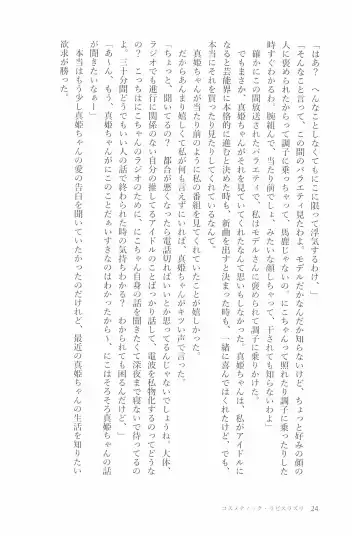 「はあ？　へんなことしなくてもにこに限って浮気するわけ、」
「そんなこと言って、この間のバラエティ見たわよ。モデルだかなんだか知らないけど、ちょっと好みの顔の
人に褒められたからって調子に乗っちゃって、馬鹿じゃないの。にこちゃんって照れたり調子に乗ったりした
時すぐわかるわ。腕組んで、当たり前でしょ、みたいな顔しちゃって、干されても知らないわよ」
　確かにこの間放送されたバラエティで、私はモデルさんに褒められて調子に乗りかけた。
　でもまさか、真姫ちゃんがそれを見ていてくれるなんて思いもしなかった。真姫ちゃんは、私がアイドルに
なると芸能界に本格的に進むと決めた時も、新曲を出すと決まった時も、一緒に喜んではくれたけど、でも、
本当にそれを買ったり見たりしてくれているなんて。
　真姫ちゃんが当たり前のように私の番組を見てくれていたことが嬉しかった。
　だからあんまり嬉しくて私が何も言えずにいれば、真姫ちゃんがキツい声で言った。
「ちょっと、聞いてるの？　都合が悪くなったら電話切ればいいとか思ってるんじゃないでしょうね。大体、
ラジオでも進行に関係のない自分の推してるアイドルのことばっかり話して、電波を私物化するのってどうな
の？　こっちはにこちゃんのラジオのために、にこちゃん自身の話を聞きたくて深夜まで寝ないで待ってるの
よ。三十分間どうでもいい人の話で終わられた時の気持ちわかる？　わかられても困るんだけど、」
「あ～ん、もう、真姫ちゃんがにこのことだぁいすきなのはわかったから～、にこはそろそろ真姫ちゃんの話
が聞きたいなぁ～」
　本当はもう少し真姫ちゃんの愛の告白を聞いていたかったのだけれど、最近の真姫ちゃんの生活を知りたい
欲求が勝った。
コスメティック・ラピスラズリ　24